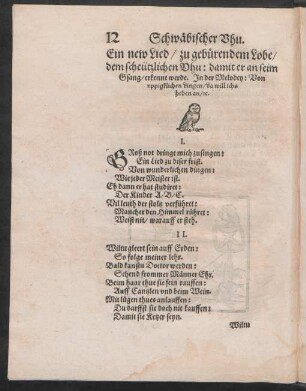 12 Schwäbischer Vhu.
Ein new Lied / zu gebürendem Lobe /
dem scheützlichen Vhu: damit er an seim
Gsang / erkennt werde. In der Melodey: Von
vppigklichen dingen / so will ichs
heben an / ꝛc.
I.
GRoß not bringt mich zusingen:
Ein Lied zu diser frist.
Von wunderlichen dingen:
Wie jeder Meister ist.
Eh dann er hat studiert:
Der Kinder A/B/C.
Vil leuth der stoltz verführet:
Mancher den Himmel rühret:
Weist nit / warauff er steh.
II.
Wiltu gleert sein auff Erden:
So folge meiner lehr.
Bald kanstu Doctor werden:
Schend frommer Männer Ehr.
Beim haar thue sie fein rauffen:
Auff Cantzlen vnd beim Wein.
Mit lügen thues anlauffen:
Du darffst sie doch nit kauffen:
Damit sie Ketzer seyn.
Wiltu